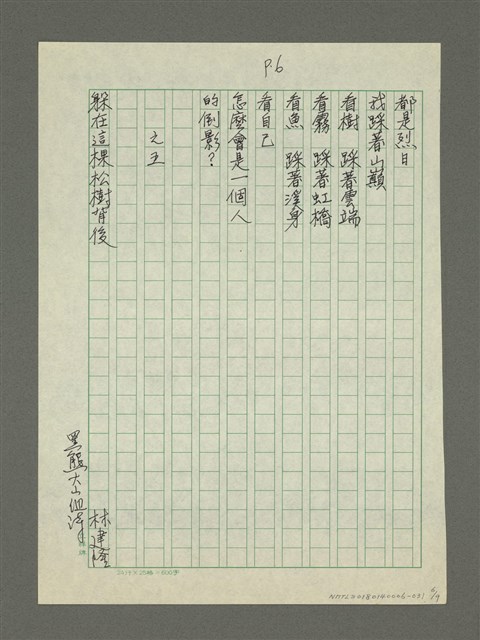 P.6
都是烈日
我踩著山巔
看樹 踩著雲端
看霧 踩著虹橋
看魚 踩著溪身
看自己
怎麼會是一個人
的倒影？
之五
躲在這棵松樹背後
林建隆
黑熊大山
24行×25格=600字
6/9